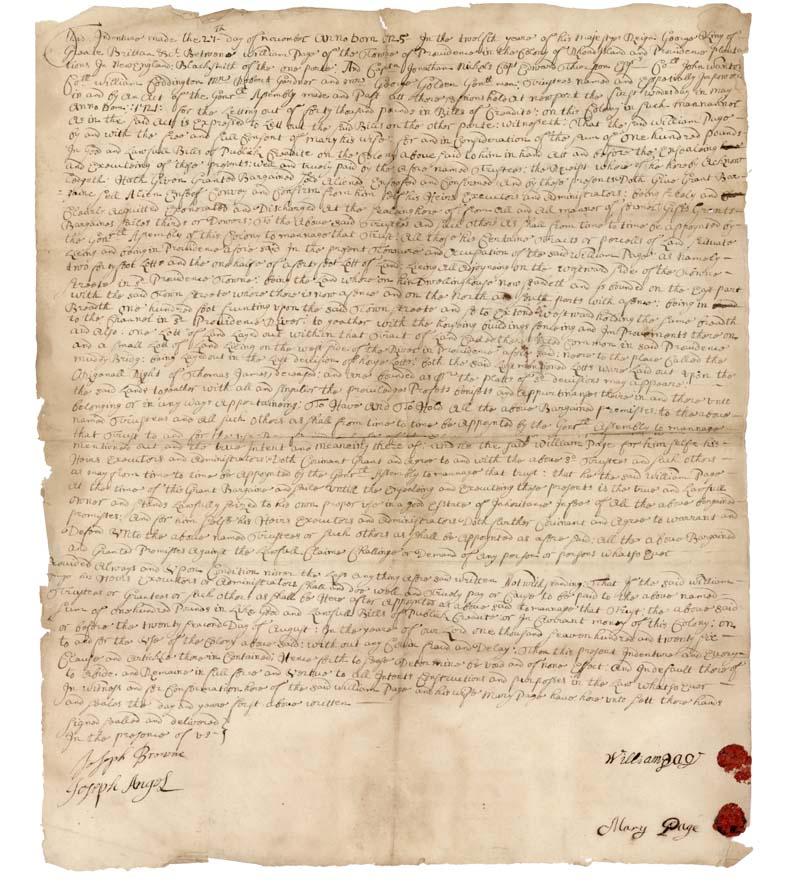 This Indenture made the 27th day of november Anno Dom: 1725 In the twelfth yeare of his majestys Reign George King of
Greate Brittan &c: Betweene William Page of the Towne of Providence in the Colony of Rhoad Island and Providence plantati
tions In New England Blacksmith of the one parte: And Capt Jonathan Nichols Cap: Edward Esqr Coll John Wanton
Coll William Coddington mr Robert Gardner and mr George Golden Gentmen: Trustees named and Especially Impowred
in and by an Act of the Genrll Assembly made and Past att there sessions held at newport the first wednsday in may
Anno Dom: 1721: for the Letting out of forty thousand pounds in Bills of Creadite: on this Colony in such mannar
As in the said Act is Exprest to Lett out the said Bills on the other parte: witneseth: that the said William Page
by and with the free and full Consent of mary his wife: for and in Consideration of the sum of one hundred pounds
In good and Lawfull Bills of Publick Creadite on the Colony above said to him in hand Att and before the Ensealing
and Executeing of these presents: well and truely paid by the afore named Trustees: the Receipt where of he hereby Acknow
ledgeth Hath Given Granted Bargained sold Aliened Enfeofed and Confirmed And by these presents Doth Give Grant Bar
gaine sell Alien Enfeof Convey and Confirm from him selfe his Heirs Executors and administrators: being freely and
Clearly Acquitted Exonerated and Discharged At the sealing hereof from all and All manner of former Gifts Grants
Bargaines sailes thirds or Dowers: To the Above said Trustees and such others as shall from time to time be appoynted by
the Genrll Assembly of this Colony to mannage that Trust: All those his Certaine Tracts or parcells of Land situate
Lieing and being in Providence afore said In the present Tennure and Occupation of the said William Page as namely
two forty foot Lotts and the one halfe of a forty foot Lott of Land: Lieing All Adjoyneing on the westward side of the Towne
streete in sd Providence Towne: being the Land where on his Dwelling house now standeth and is bounded on the East part
with the said Town streete where there is now a fence and on the North and south parts with a fence: being in
Breadth one hundred foot fronting upon the said Town streete and so to Extend westward holding the same breadth
to the Channel in sd Providence River: to geather with the houseing buildings fenceing and Improvments there on
And Also: one Lott of Land Layed out within that Tract of Land Called the Common in said Providence
and a small Lott of Land Lieing on the west side of the River in Providence afore said: neere to the place Called the
muddy Bridg: being Layed out in the Last devisions of house Lotts: both the said Last mentioned Lotts were Laid out upon the
Origenall Right of Thomas James, deceased: and are bounded as of the platts of sd devisions may Appeare
the said Lands togather with all and singuler the priviledges Profits benifits and appurtinances there in and there unto
belonging or in any ways Appertaineing: To Have And To Hold All the above Bargained premises: to the above
named Trustees and all such others as shall from time to time be Appoynted by the Genrll Assembly to mannage
that Trust
mentioned act and the true Intent and meaneing there of. And he the said William Page for him selfe his
Heirs Executors and Administrators: Doth Covinant Grant and agree to and with the above sd Trustees and such others
as may from time to time be Appoynted by the Genrll Assembly to mannage that trust: that he the said William Page
At the time of this Grant Bargaine and saile untill the Ensealing and Executeing these presents is the true and Lawfull
owner and stands Lawfully seized to his own proper use in a good Estate of Inheritance In fee of All the above bargained
premises: And for him selfe his Heirs Executors and Administrators: Doth farther Covinant and Agree to warrant and
Defend unto the above named Trustees or such others as shall be Appoynted as afore said, All the above Bargained
And Granted Premises Against the Lawfull Claime Challinge or Demand of any person or persons whatsoever
Provided Always and upon Condition never the Less any thing Afore said written notwithstanding: That if the said William
Page his Heirs Executors or Administrators shall and doe well and Truely pay or Cause to be paid to the above named
Trustees or Grantees or such others as shall be Here after Appoynted as above said to mannage that Trust, the above said
sum of one hundred Pounds in Like Good and Lawfull Bills of Publick Creadite or In Currant money of this Colony: on
or before the twenty seavend Day of August: In the yeare of our Lord one thousand seaven hundred and twenty six
to and for the use of the Colony above said: with out any Covin fraud and Delay: Then this present Indenture and Every
Clause and article there in Contained; Hence forth to Cease Determine be void and of none Efect: And In default there of
to abide: and Remaine in full force and vertue to All Intents Constructions and purposses in the Law whatsoever
In Witness and for Confirmation here of the said William Page and his wife Mary Page have here unto sett there hands
and seales the day and yeare first above written
signed sealled and delivered
In the presence of us
Joseph Browne
Joseph Angel
William page
Mary Page